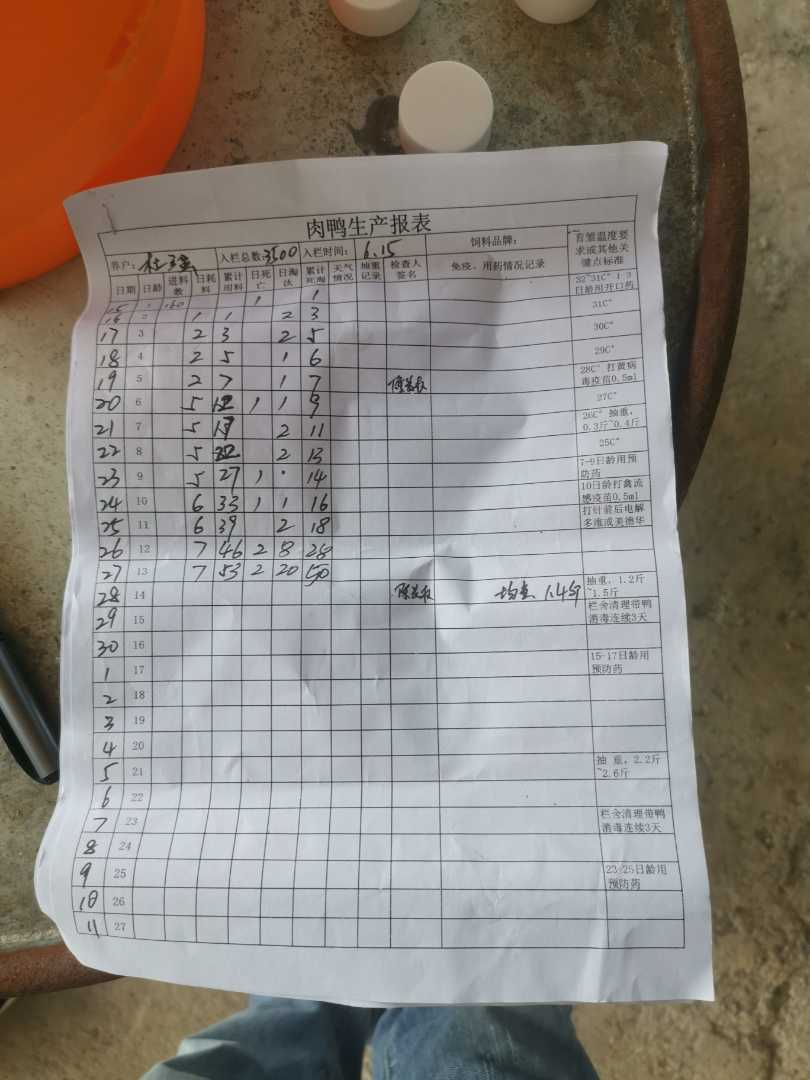 肉鸭生产报表
养户: 杜强 入栏总数: 3500 入栏时间: 6.15 饲料品牌: 育雏温度要求或其他关键点标准
日期 日龄 进料数 日耗料 累计用料 日死亡 日淘汰 累计死淘 天气情况 抽重记录 检查人签名 免疫、用药情况记录
15 1 160 1 1 32~31C° 1-3日龄用开口药
16 2 1 1 2 3 31C°
17 3 2 3 2 5 30C°
18 4 2 5 1 6 29C°
19 5 2 7 1 7 28C° 打黄病毒疫苗0.5ml
20 6 5 12 1 1 9 27C°
21 7 5 17 2 11 26C° 抽重,0.3斤~0.4斤
22 8 5 22 2 13 25C°
23 9 5 27 1 · 14 7-9日龄用预防药
24 10 6 33 1 1 16 10日龄打禽流感疫苗0.5ml
25 11 6 39 2 18 打针前后电解多维或美德华
26 12 7 46 2 8 28
27 13 7 53 2 20 50
28 14 均重 1.4斤 抽重,1.2斤~1.5斤
29 15 栏舍清理带鸭消毒连续3天
30 16
1 17 15-17日龄用预防药
2 18
3 19
4 20
5 21 抽重,2.2斤~2.6斤
6 22
7 23 栏舍清理带鸭消毒连续3天
8 24
9 25 23-25日龄用预防药
10 26
11 27